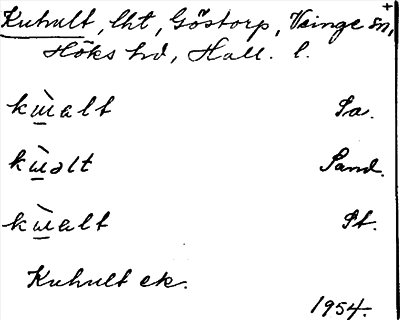 Kuhult, lht, Göstorp, Veinge sn,
Höks hd, Hall. l.
kɯ̀alt Sa.
kɯ̀əlt Sand.
kɯ̀alt St.
Kuhult ek.
1954.